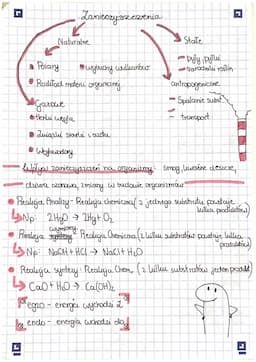 Zanieczyszczenia
Naturalne
Stałe
Pożary
wybuchy wulkanów
pyły, pyłki
zarodniki roślin
Rozkład materii organicznej
antropogeniczne
Gazowe
Spalanie subst.
tlenki węgla
transport
Związki siarki i azotu
Węglowodory
Wpływ zanieczyszczeń na organizmy: smog, kwaśne deszcze,
dziura ozonowa, zmiany w budowie organizmów
Reakcja Analizy- Reakcja chemiczna (z jednego substratu powstaje kilka produktów)
Np: 2H₂O → 2H₂+O₂
Reakcja wymiany: Reakcja Chemiczna (z kilku substratów powstaje kilka produktów)
Np: NaOH+HCl → NaCl+H₂O
Reakcja syntezy: Reakcja Chem. (z kilku substratów jeden produkt)
CaO+H₂O → Ca(OH)₂
egzo - energia wychodzi z
endo - energia wchodzi do